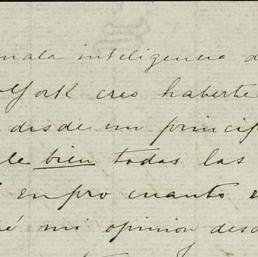 mala inteligencia d
York creo haberte
desde un princip
le bien todas las
en pro cuanto
mi opinion desd